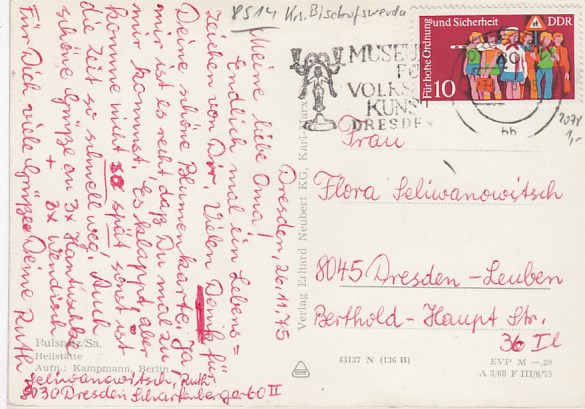 8514 Krs. Bischofswerda
Für hohe Ordnung und Sicherheit
DDR
10
MUSEUM
FÜR
VOLKS
KUNST
DRESDEN
Dresden, 26.11.75
Meine liebe Oma!
Endlich mal ein Lebens=
zeichen von Dir. Vielen Dank für
Deine schöne Blumenkarte. Ja,
mir ist es recht daß Du mal zu
mir kommst. Es klappt aber
komme nicht so spät, sonst ist
die Zeit so schnell weg. Auch
schöne Grüße an 3x Hantuschke
+ 3x Wendisch
Für Dich viele Grüße Deine Ruth
Pulsnitz/Sa.
Heilstätte
Aufn.: Kampmann, Berlin
Seliwanowitsch, Ruth
8030 Dresden Scharfenberger 60 II
Verlag Erhard Neubert KG, Karl-Marx
Frau
Flora Seliwanowitsch
8045 Dresden-Leuben
Berthold-Haupt Str.
36 II
43137 N (136 B)
EVP M —,20
A 3/68 F III/6/75
1,-